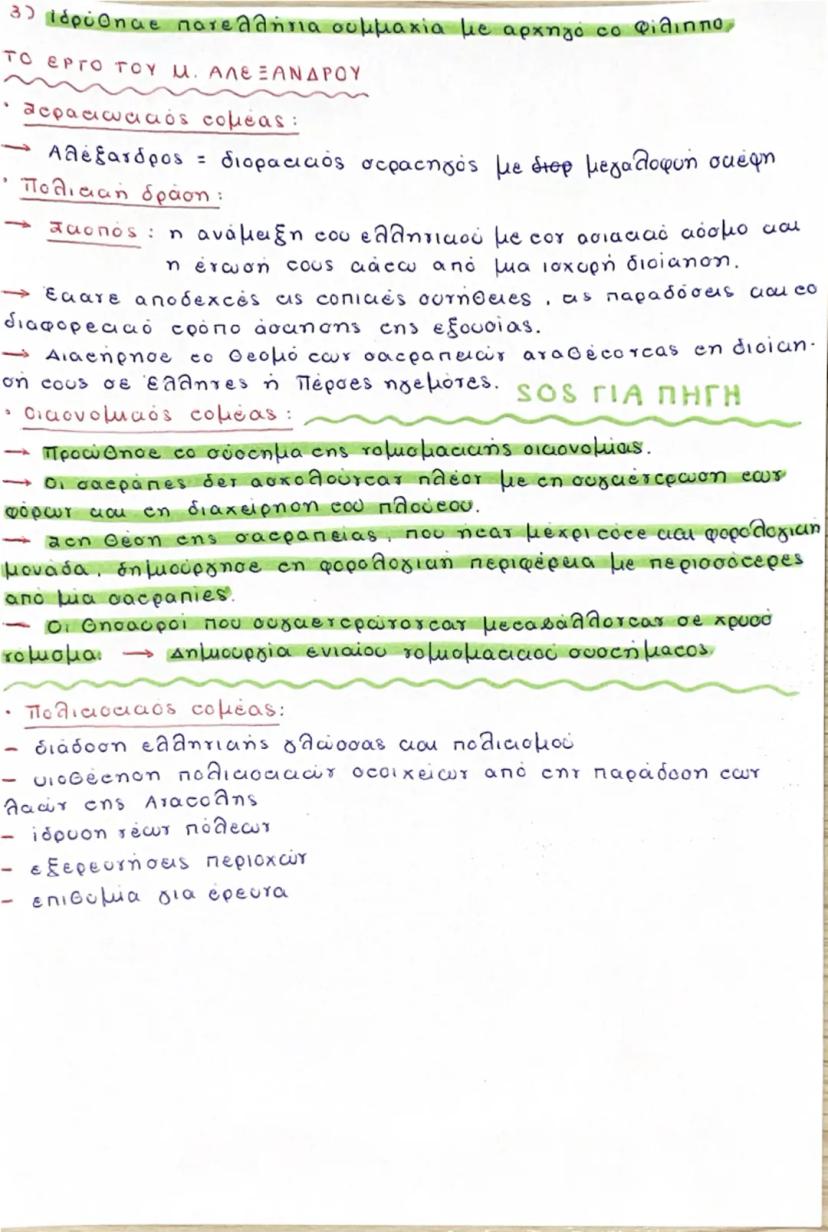 3) ιδρύθηκε πανελλήνια συμμαχία με αρχηγό το Φίλιππο.
ΤΟ ΕΡΓΟ ΤΟΥ Μ. ΑΛΕΞΑΝΔΡΟΥ
· Στρατιωτικός τομέας:
→ Αλέξανδρος = διορατικός στρατηγός με διορ μεγαλοφυή σκέψη
· Πολιτική δράση:
→ Σκοπός: η ανάμειξη του ελληνικού με τον ασιατικό κόσμο και
η ένωσή τους κάτω από μια ισχυρή διοίκηση.
→ Έκανε αποδεκτές τις τοπικές συνήθειες, τις παραδόσεις και το
διαφορετικό τρόπο άσκησης της εξουσίας.
→ Διατήρησε το θεσμό των σατραπειών αναθέτοντας τη διοίκη-
σή τους σε Έλληνες ή Πέρσες ηγεμόνες. SOS ΓΙΑ ΠΗΓΗ
· Οικονομικός τομέας:
→ Προώθησε το σύστημα της νομισματικής οικονομίας.
→ Οι σατράπες δεν ασχολούνταν πλέον με τη συγκέντρωση των
φόρων και τη διαχείρηση του πλούτου.
→ Στη θέση της σατραπείας, που ήταν μέχρι τότε και φορολογική
μονάδα, δημιούργησε τη φορολογική περιφέρεια με περισσότερες
από μία σατραπίες.
→ Οι θησαυροί που συγκεντρώνονταν μεταβάλλονταν σε χρυσό
νόμισμα. → Δημιουργία ενιαίου νομισματικού συστήματος
· Πολιτιστικός τομέας:
- διάδοση ελληνικής γλώσσας και πολιτισμού
- υιοθέτηση πολιτιστικών στοιχείων από την παράδοση των
λαών της Ανατολής
- ίδρυση νέων πόλεων
- εξερευνήσεις περιοχών
- επιθυμία για έρευνα